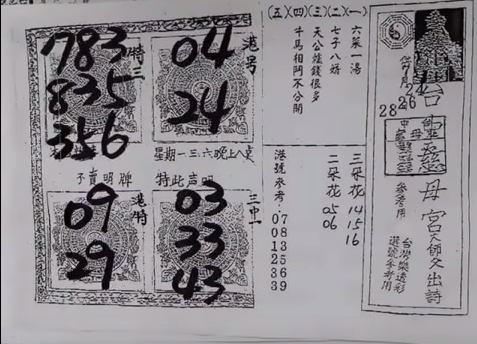 783
835
356
特三
04
24
港号
星期一三六晚上八点
不賣明牌
特此声明
09
29
港特
03
33
43
三中一
(五)(四)(三)(二)(一)
六菜一湯
七子八婿
天公錢很多
千馬相阿不分開
港號來考:07
08
13
25
36
39
二朵花 05
06
三朵花 14
15
16
24
26
28
慈母宮
天師文出詩
參考用
台灣樂透彩
選號參考用